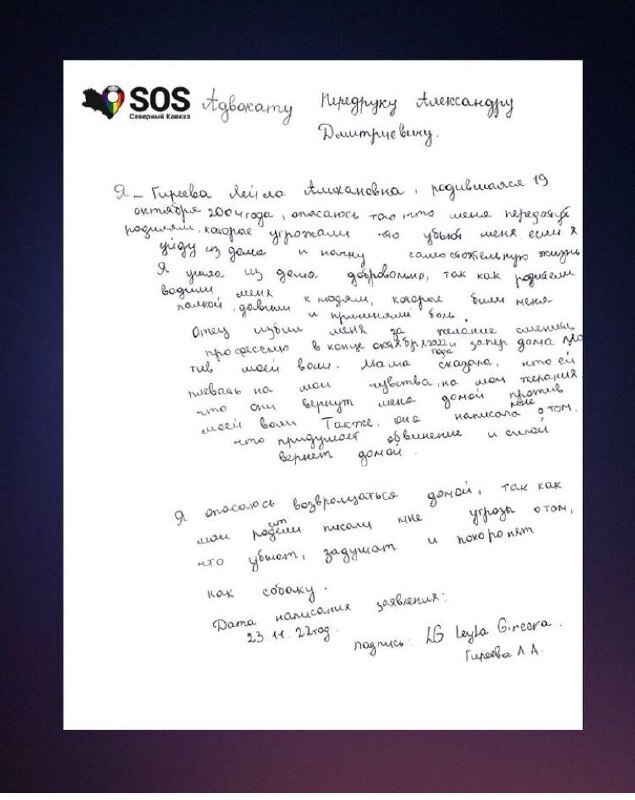 SOS
Северный Кавказ
Адвокату Передруку Александру
Дмитриевичу.
Я – Гиреева Лейла Алихановна, родившаяся 19
октября 2004 года, опасаюсь того, что меня передадут
родителям, которое угрожали что убьют меня если я
уйду из дома и начну самостоятельную жизнь
Я ушла из дома добровольно, так как родители
водили меня к людям, которое били меня
палкой, давили и причиняли боль.
Отец избил меня за желание сменить
профессию в конце октября 2022 года и запер дома про
тив моей воли. Мама сказала, что ей
плевать на мои чувства, на мои желания
что они вернут меня домой против
моей воли. Также, она написала мне о том,
что придумает обвинение и силой
вернет домой.
Я опасаюсь возвращаться домой, так как
мои родители писали мне угрозы о том,
что убьют, задушат и похоронят
как собаку.
Дата написания заявления:
23.11.22 год.
подпись: LG Leyla Gireeva.
Гиреева Л А.